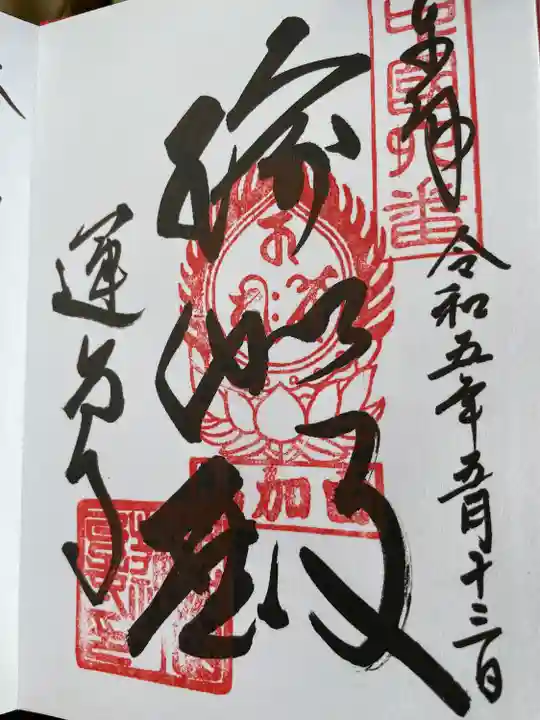 奉拝
令和五年五月十三日
瑜伽殿
由加山
蓮台寺